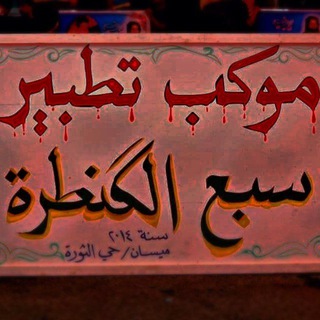 موكب تطبير
سبع الگنطرة
سنة ٢٠١٤
ميسان/حي الثورة